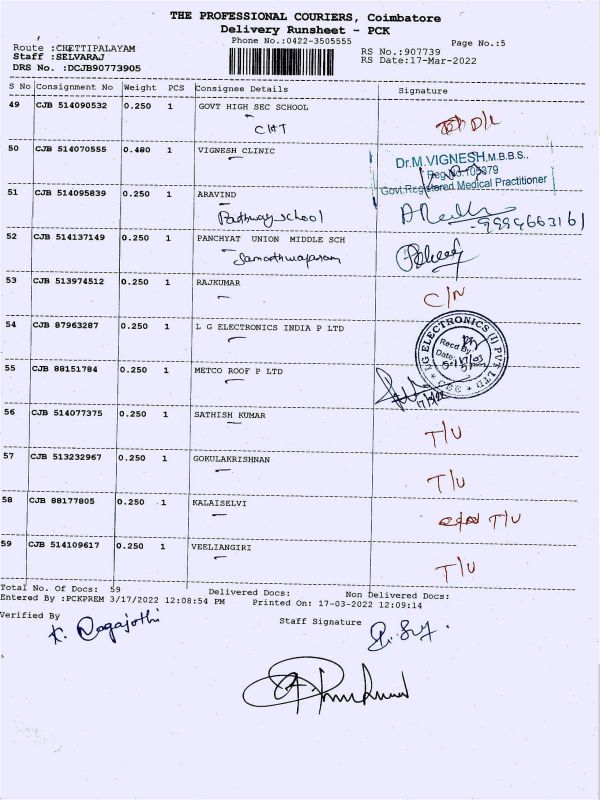 THE PROFESSIONAL COURIERS, Coimbatore
Delivery Runsheet - PCK
Phone No.:0422-3505555
Page No.:5
Route :CHETTIPALAYAM
Staff :SELVARAJ
DRS No. :DCJB90773905
RS No.:907739
RS Date:17-Mar-2022
S No Consignment No Weight PCS Consignee Details Signature
49 CJB 514090532 0.250 1 GOVT HIGH SEC SCHOOL
CHT
D/L
50 CJB 514070555 0.480 1 VIGNESH CLINIC
Dr.M.VIGNESH,M.B.B.S.,
Reg.No.103879
Govt.Registered Medical Practitioner
51 CJB 514095839 0.250 1 ARAVIND
Pathway school
-9994663161
52 CJB 514137149 0.250 1 PANCHYAT UNION MIDDLE SCH
53 CJB 513974512 0.250 1 RAJKUMAR
C/N
54 CJB 87963287 0.250 1 L G ELECTRONICS INDIA P LTD
LG ELECTRONICS (I) PVT LTD
Recd By
Date:
55 CJB 88151784 0.250 1 METCO ROOF P LTD
56 CJB 514077375 0.250 1 SATHISH KUMAR
T/U
57 CJB 513232967 0.250 1 GOKULAKRISHNAN
T/U
58 CJB 88177805 0.250 1 KALAISELVI
T/U
59 CJB 514109617 0.250 1 VEELIANGIRI
T/U
Total No. Of Docs: 59 Delivered Docs: Non Delivered Docs:
Entered By :PCKPREM 3/17/2022 12:08:54 PM Printed On: 17-03-2022 12:09:14
Verified By
Staff Signature
K. Nagajothi